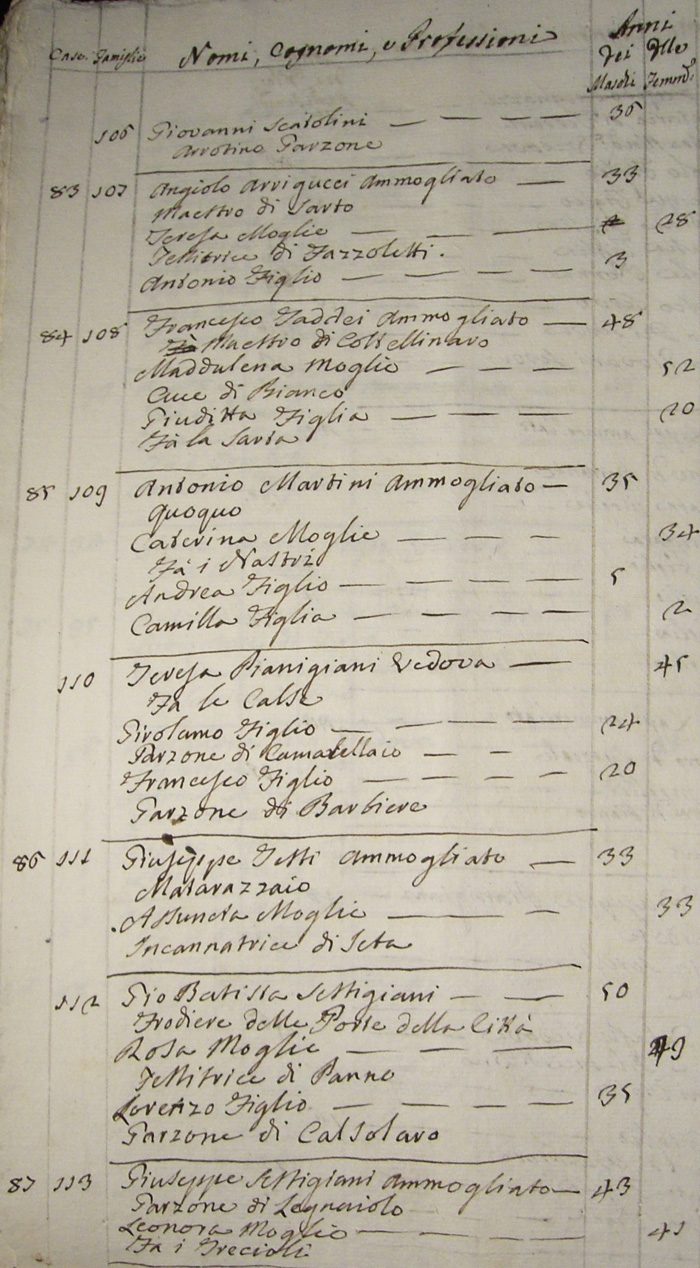 Anni
Case Famiglie Nomi, Cognomi, e Professioni dei delle
Maschi Femm.e
106 Giovanni Scarolini — — — — 36
Arrotino Garzone
83 107 Angiolo Arrigucci Ammogliato — 33
Maestro di Sarto
Teresa Moglie — — — — 28
Tessitrice di Fazzoletti.
Antonio Figlio — — — — 3
84 108 Francesco Taddei Ammogliato — 48
Maestro di Coltellinaro
Maddalena Moglie — — — 52
Cuce di Bianco
Giuditta Figlia — — — — 20
Fà la Sarta
85 109 Antonio Martini Ammogliato — 35
Quoquo
Caterina Moglie — — — 34
Fà i Nastri
Andrea Figlio — — — — 5
Camilla Figlia — — — — 2
110 Teresa Pianigiani Vedova — 45
Fà le Calse
Girolamo Figlio — — — — 24
Garzone di — —
Francesco Figlio — — — — 20
Garzone di Barbiere
86 111 Giuseppe Tetti Ammogliato — 33
Matarazzaio
Assunta Moglie — — — 33
Incannatrice di Seta
112 Gio Batissa Settigiani — — — 50
Frodiere delle Porte della Città
Rosa Moglie — — — — 49
Tessitrice di Panno
Lorenzo Figlio — — — — 35
Garzone di Calsolaro
87 113 Giuseppe Settigiani Ammogliato — 43
Garzone di Legnaiolo
Leonora Moglie — — — — 41
Fà i Trecioli